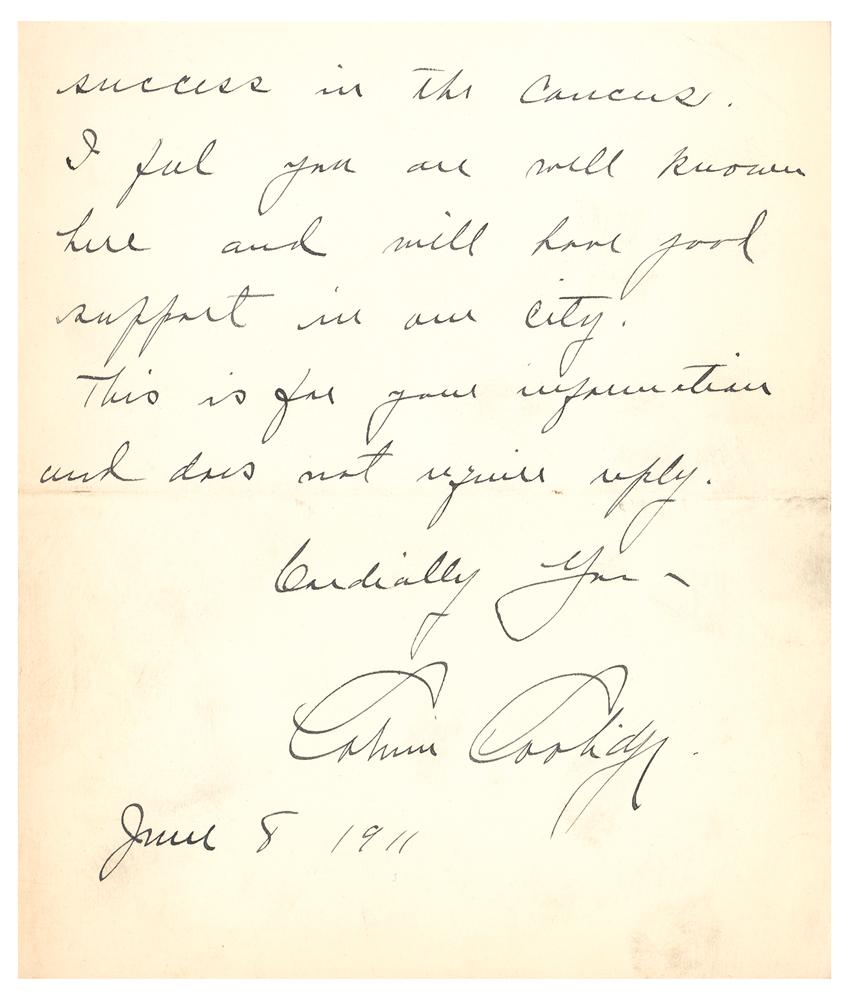 success in the Caucus.
I feel you are well known
here and will have good
support in our city.
This is for your information
and does not require reply.
Cordially Your
Calvin Coolidge.
June 8 1911